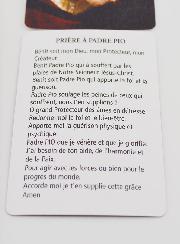 PRIÈRE À PADRE PIO
Petit soit mon Dieu, mon Protecteur, mon
Créateur.
Petit Padre Pio qui a souffert par les
plaies de Notre Seigneur Jésus-Christ.
Petit Padre Pio qui apporte la foi et la
guérison.
Padre Pio soulage les peines de ceux qui
souffrent, nous t'en supplions !
O grand Protecteur des âmes en détresse
Redonne-moi la foi et le bien-être.
Apporte moi la guérison physique et
psychique.
Padre Pio que je vénère et que je glorifie.
J'ai besoin de ton aide, de l'harmonie et
de la Paix.
Pour agir avec les forces du bien pour le
progrès du monde.
Accorde moi je t'en supplie cette grâce
Amen